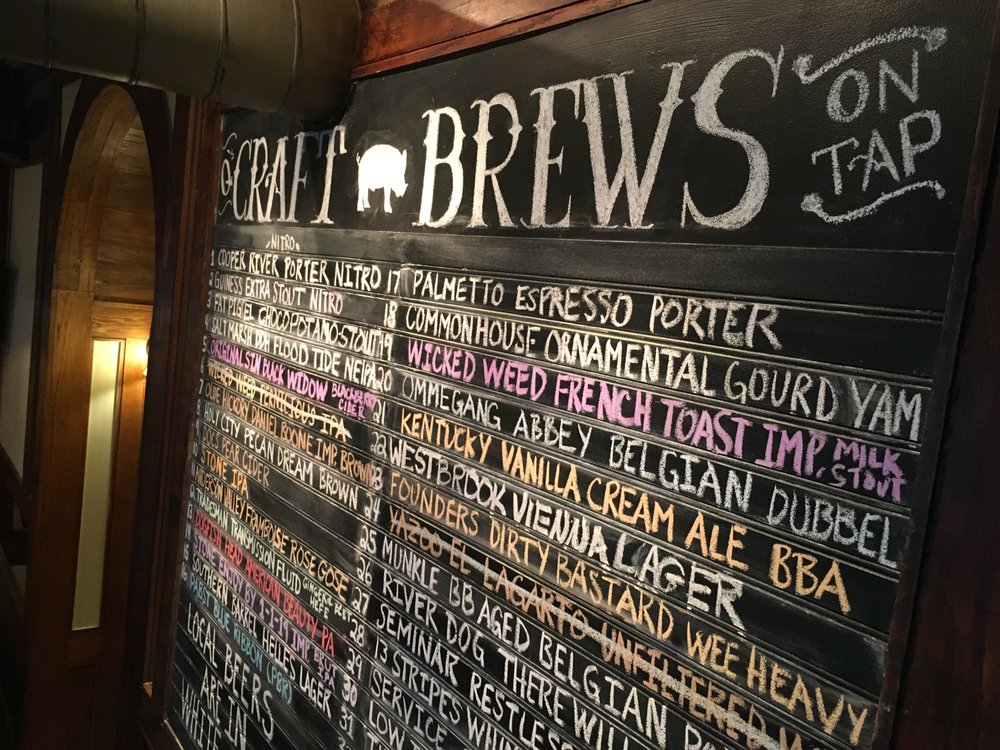 CRAFT BREWS
ON TAP
NITRO
1 COOPER RIVER PORTER NITRO
2 GUINESS EXTRA STOUT NITRO
3 FAT PIG EL CHOCOPOTAMO STOUT
4 SALT MARSH DDH FLOOD TIDE NEIPA
5 ORIGINAL SIN BLACK WIDOW BLACKBERRY CIDER
WICKED WEED PERNICIOUS IPA
OLDE HICKORY DANIEL BOONE IMP BROWN
HOLY CITY PECAN DREAM BROWN
DOC'S PEAR CIDER
STONE IPA
ANDERSON VALLEY FRAMBOISE ROSE GOSE
TRADESMAN TRANSMISSION FLUID GINGERS BEET HEFE
DOGFISH HEAD AMERICAN BEAUTY PA
STONE ENJOY BY 1-1-19 IMP BRUT IPA
SOUTHERN BARREL HELLES LAGER
PABST BLUE RIBBON (PBR)
LOCAL BEERS
ARE IN
WHITE
17 PALMETTO ESPRESSO PORTER
18 COMMONHOUSE ORNAMENTAL GOURD YAM
19 WICKED WEED FRENCH TOAST IMP. MILK STOUT
20 OMMEGANG ABBEY BELGIAN DUBBEL
21 KENTUCKY VANILLA CREAM ALE BBA
22 WESTBROOK VIENNA LAGER
23 FOUNDERS DIRTY BASTARD WEE HEAVY
24 YAZOO EL LAGARTO UNFILTERED
25 MUNKLE BB AGED BELGIAN
26 RIVER DOG THERE WILL
27 SEMINAR RESTLESS
28 13 STRIPES
29 SERVICE
30 LOW
31